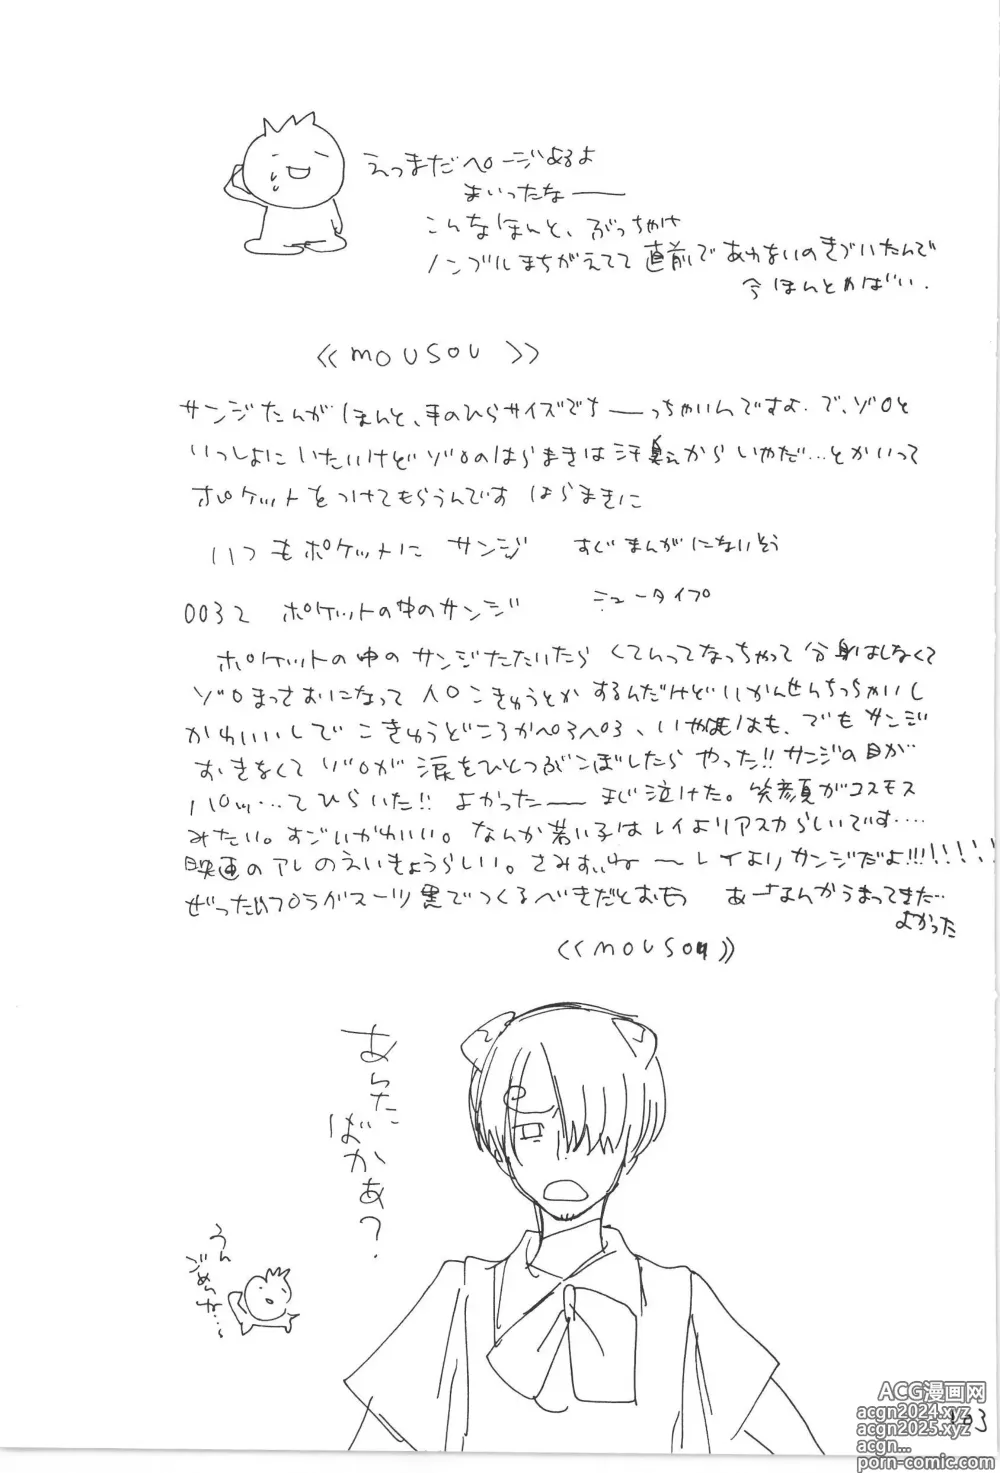 えっまだページあるよ
まいったなー
こんなほんと、ぶっちゃけ
ノンブルまちがえてて直前であわないのきづいたんで
今ほんとやばい.
《MOUSOU》
サンジたんがほんと、手のひらサイズでちーっちゃいんですよ. で、ゾロと
いっしょにいたいけどゾロのはらまきは汗臭えからいやだ…とかいって
ポケットをつけてもらうんです はらまきに
いつもポケットに サンジ すぐまんがにないそう
0032 ポケットの中のサンジ ニュータイプ
ポケットの中のサンジたたいたら くてんってなっちゃって 分身はしなくて
ゾロまっさおになって 人口こきゅうとか するんだけどいかんせんちっちゃいし
かわいいしで こきゅうどころかペろペろ、いやはも、でもサンジ
おきなくて ゾロが 涙をひとつぶこぼしたら やった!! サンジの目が
パッ…てひらいた!! よかったー まじ泣けた。笑顔がコスモス
みたい。すごいかわいい。なんか若い子はレイよりアスカらしいです….
映画のアレのえいきょうらしい。さみすぃね ～レイよりサンジだよ!!!!!!!!
ぜったいプラグスーツ黒でつくるべきだとおもう あーなんかうまってきた…
よかった
《MOUSOU》
あんた
ばかぁ?
うん
ごめんな…
103
ACG漫画网
acgn2024.xyz
acgn2025.xyz
acgn...
porn-comic.com